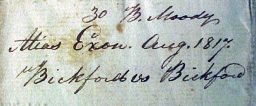 30 B. Moody
Alias Exon. Aug. 1817.
Bickford vs Bickford